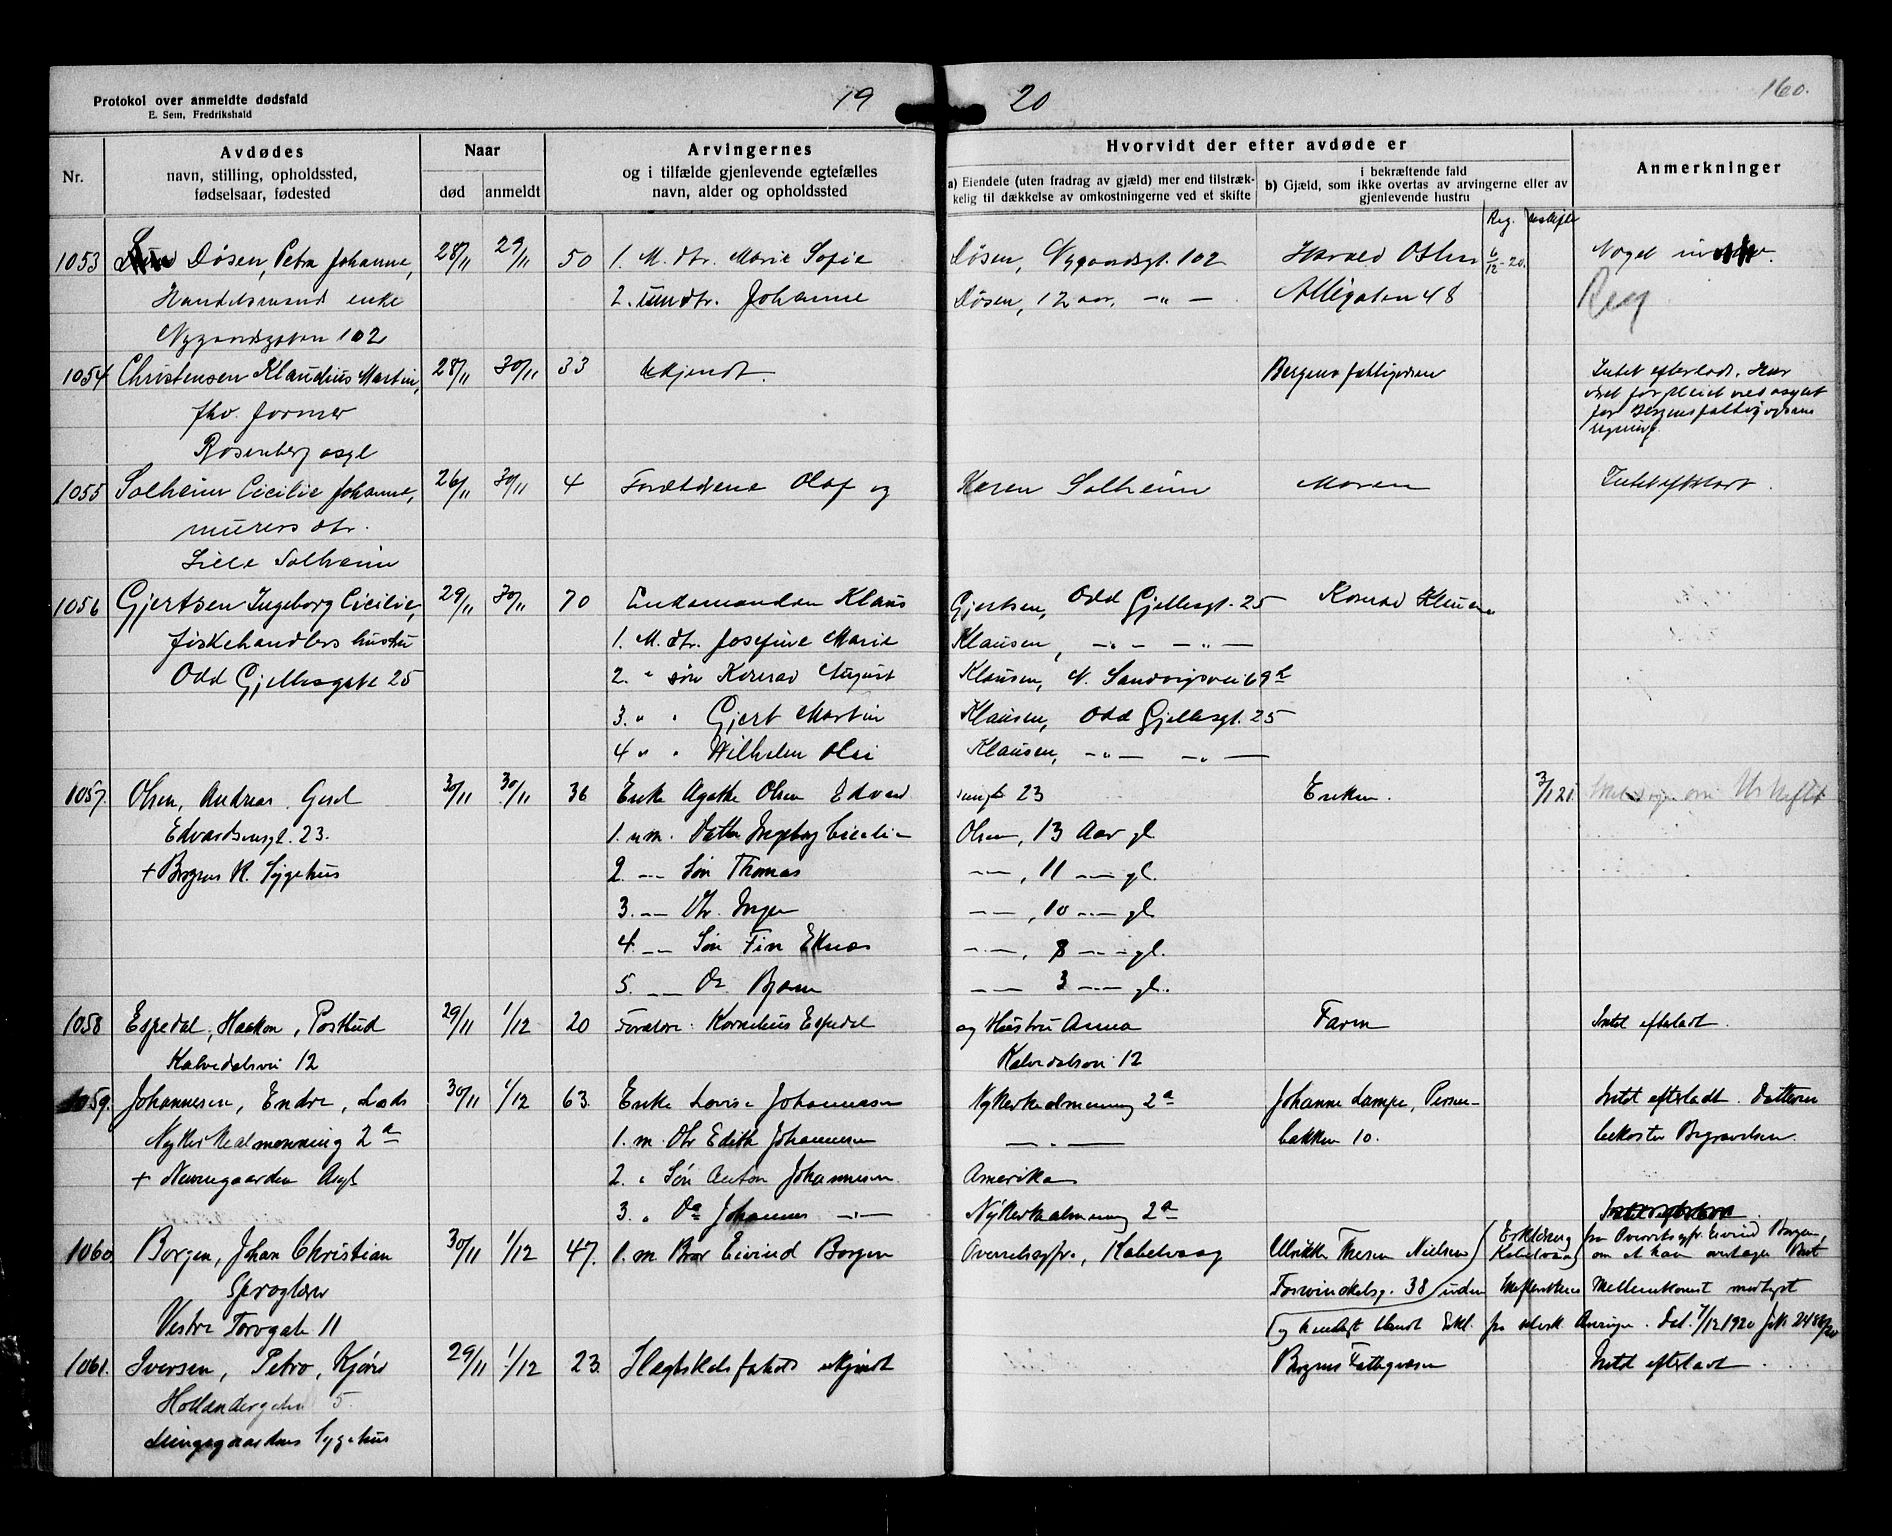 Protokol over anmeldte dødsfald
E. Sem, Fredrikshald
19 20
160.
Nr.
Avdødes
navn, stilling, opholdssted,
fødselsaar, fødested
Naar
død anmeldt
Arvingernes
og i tilfælde gjenlevende egtefælles
navn, alder og opholdssted
Hvorvidt der efter avdøde er
a) Eiendele (uten fradrag av gjæld) mer end tilstræk-
kelig til dækkelse av omkostningerne ved et skifte
i bekræftende fald
b) Gjæld, som ikke overtas av arvingerne eller av
gjenlevende hustru
Anmerkninger
Reg.
1053 Døsen, Petra Johanne, 28/11 29/11 50 1. M. dtr. Marie Sofie Døsen, Nygaardsgt. 102 Harald Olsen 6/12-20. Noget
Handelsmand enke 2. um dtr. Johanne Døsen, 12 aar, -"- Allégaten 48 Reg
Nygaardsgaten 102
1054 Christensen Klaudius Martin, 28/11 30/11 33 Ukjendt. Bergens fattigvæsen Intet efterladt. Har
fhv. former været forpleiet ved asylet
Rosenberg asyl for Bergens fattigvæsens
regning.
1055 Solheim Cicilie Johanne, 26/11 30/11 4 Forældrene Olaf og Karen Solheim Moren Intet efterladt.
murers dtr.
Lille Solheim
1056 Gjertsen Ingeborg Cicilie, 29/11 30/11 70 Enkemanden Klaus Gjertsen, Odd Gjellesgt. 25 Konrad Klausen
fiskehandlers hustru 1. M. dtr. Josefine Marie Klausen, -"- -"-
Odd Gjellesgate 25 2. " søn Konrad August Klausen, N. Sandvigsvei 69
3. " " Gjert Martin Klausen, Odd Gjellesgt. 25
4 " " Wilhelm Klausen, -"- -"-
1057. Olsen, Andreas 30/11 30/11 36 Enke Agathe Olsen Edvard sensgt 23 Enken. 3/1 21
Edvardsensgt. 23. 1. um. Datter Ingeborg Cicelie Olsen, 13 Aar gl
+ Bergens K. Sygehus 2. -"- Søn Thomas -"-, 11 -"- gl.
3. -"- Dtr. Inger -"-, 10 -"- gl
4. -"- Søn Fin -"-, 8 -"- gl.
5. -"- Do Bjarne -"- 3 -"- gl.
1058 Espedal, Haakon, Postbud 29/11 1/12 20 Forældre: Kornelius Espedal og Hustru Anna Faren Intet efterladt.
Kalvedalsvei 12 Kalvedalsvei 12
1059. Johannesen, Endre, Lods 30/11 1/12 63. Enke Lovise Johannesen Nykirkealmenning 2a Johanne Lampe, Perner- Intet efterladt. Datteren
Nykirkealmenning 2a 1. m. Dtr Edith Johannesen -"- bakken 10. bekoster Begravelsen.
+ Neevengaarden Asyl 2. " Søn Anton Johannesen. Amerika
3. " Do Johannes -"- Nykirkealmenning 2a
1060 Borgen, Johan Christian 30/11 1/12 47. 1. m Bror Eivind Borgen Overretssagfr., Kabelvaag Ulrikke Nielsen (Erklæring fra Overretssagfr. Eivind Borgen,
Kabelvaag) om at han overtager Boet
Sproglærer 38 uden Skifterettens Mellemkomst
Vestre Torvgate 11 fra Dat. 7/12 1920
1061. Iversen, Petra, 29/11 1/12 23. Slegtskabsforhold ukjendt Bergens Fattigvæsen Intet efterladt
Hollendergaten 5.
Sygehus